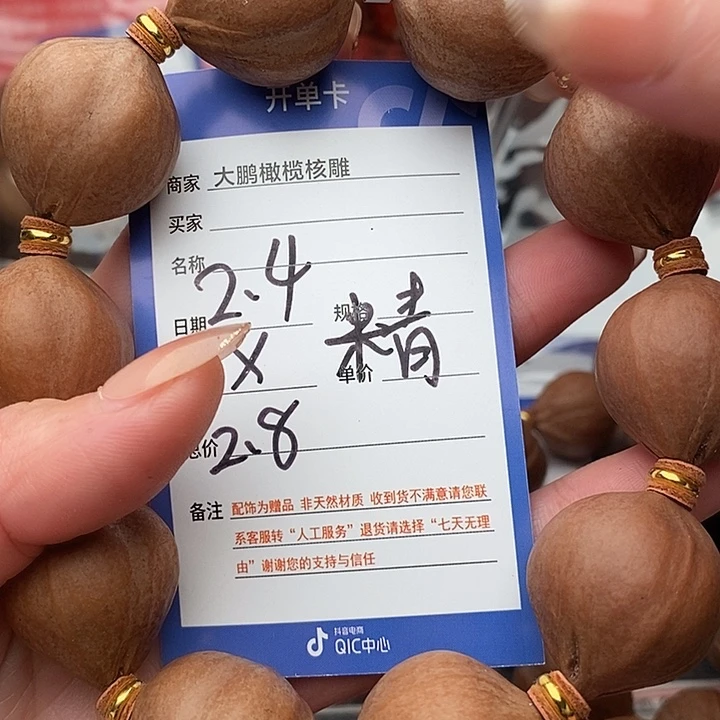 开单卡
商家 大鹏橄榄核雕
买家
名称
2.4
日期 规格
X 精
单价
总价 2.8
备注 配饰为赠品 非天然材质 收到货不满意请您联
系客服转“人工服务”退货请选择“七天无理
由”谢谢您的支持与信任
抖音电商
QIC中心